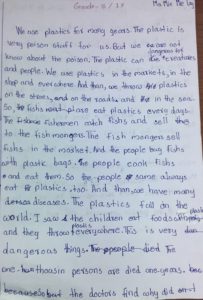 Grade - 8 / 17
Ma Mie Mie Lay
We use plastics for many years. The plastic is
very poison stuff for us. But we can not
know about the poison. The plastic can dangerous for creatures
and people. We use plastics in the markets, in the
shop and everywhere. And then, we throw plastics
on the streets, and on the roads and in the sea.
So, the fishs eat plastics every days.
The fishermen catch fishs and sell
to the fish mongers. The fish mongers sell
fishs in the market. And the people buy fishs
with plastic bags. The people cook fishs
and eat them. So the people same always
eat plastics too. And than, we have many
diseases. The plastics full on the
world. I said the children eat foods with plastic
and they throw plastic everywhere. This is very dan
dangerous things. The people died The
one thoasin persons are died one years.
because the doctors find why did